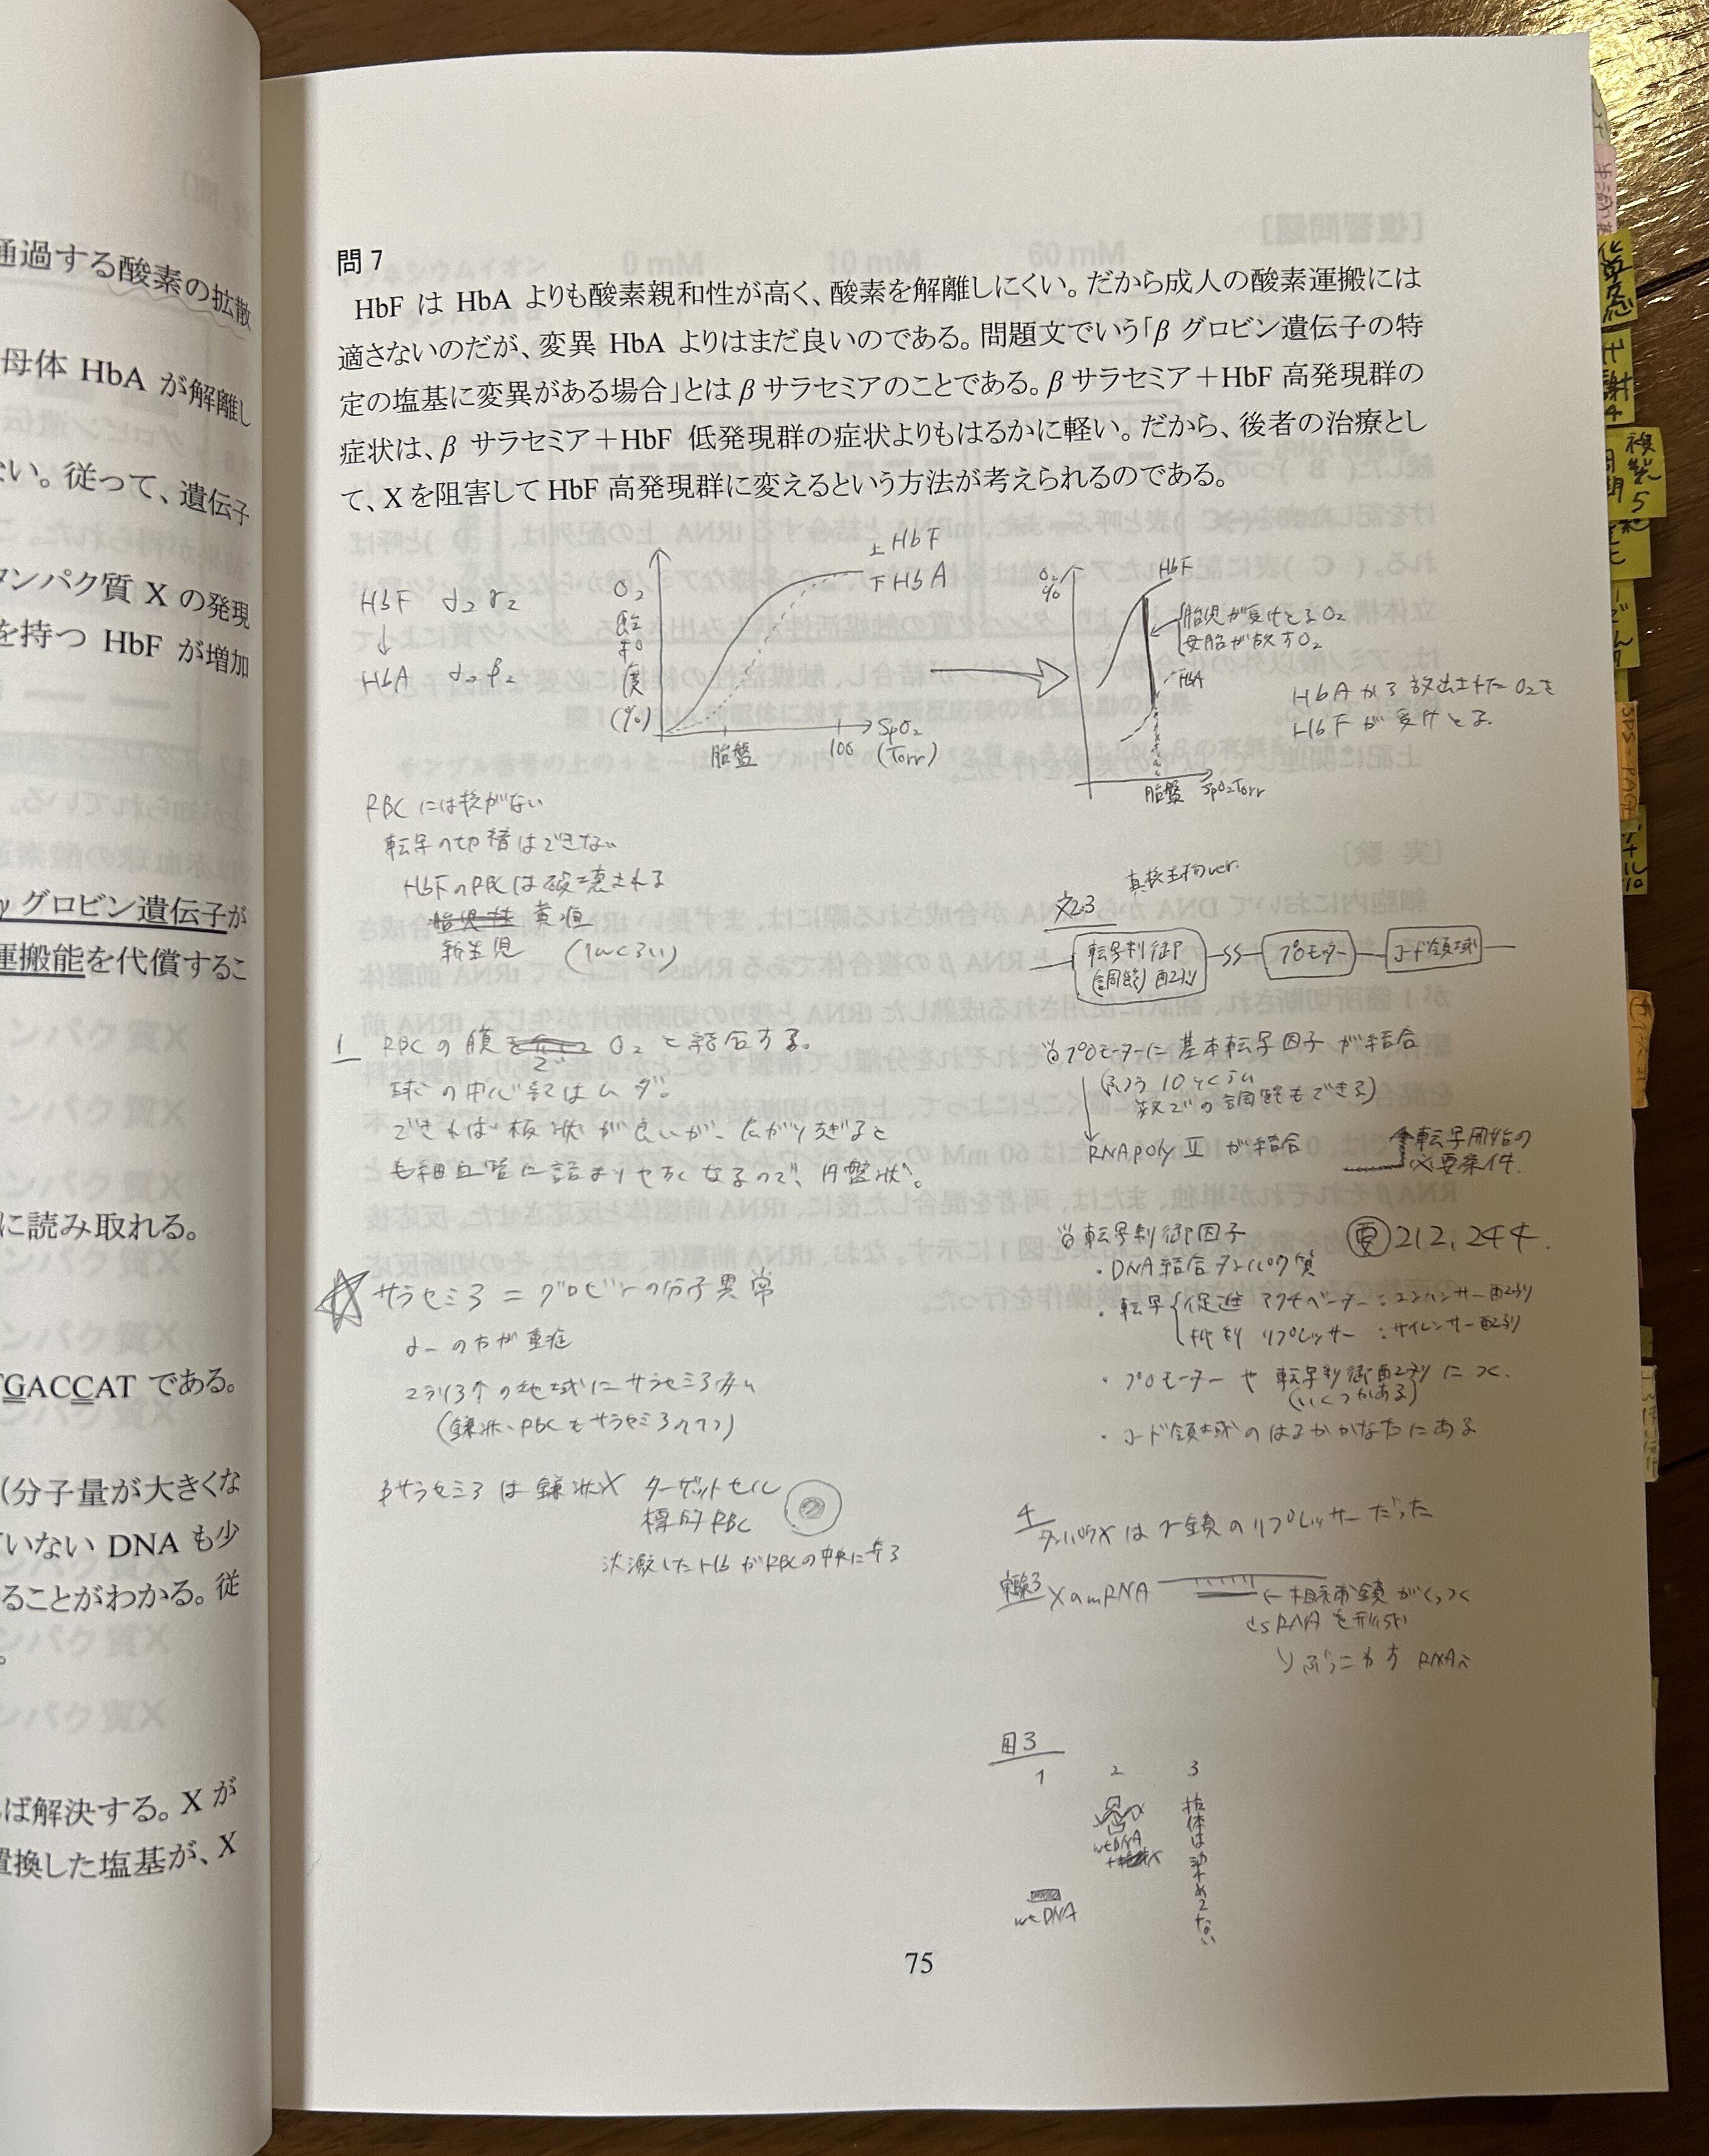 通過する酸素の拡散
母体 HbA が解離し
ない。従って、遺伝子
タンパク質 X の発現
を持つ HbF が増加
γ グロビン遺伝子が
運搬能を代償するこ
に読み取れる。
GACCAT である。
(分子量が大きくな
いない DNA も少
ることがわかる。従
。
ば解決する。X が
置換した塩基が、X
問 7
HbF は HbA よりも酸素親和性が高く、酸素を解離しにくい。だから成人の酸素運搬には
適さないのだが、変異 HbA よりはまだ良いのである。問題文でいう「β グロビン遺伝子の特
定の塩基に変異がある場合」とは β サラセミアのことである。β サラセミア＋HbF 高発現群の
症状は、β サラセミア＋HbF 低発現群の症状よりもはるかに軽い。だから、後者の治療とし
て、X を阻害して HbF 高発現群に変えるという方法が考えられるのである。
HbF α₂γ₂
↓
HbA α₂β₂
O₂
飽
和
度
(%)
上 HbF
下 HbA
胎盤
100
SpO₂
(Torr)
O₂
%
HbF
胎児が受けとるO₂
母胎が放すO₂
HbA
胎盤 SpO₂Torr
HbAから放出されたO₂を
HbFが受けとる
RBCには核がない
転写の切替はできない
HbFのRBCは破壊される
新生児 黄疸
(1wくらい)
1 RBCの膜で O₂と結合する。
球の中心部はムダ。
できれば板状が良いが、広がりすぎると
毛細血管に詰まりやすくなるので、円盤状。
☆サラセミア = グロビンの分子異常
α-の方が重症
マラリア↑の地域にサラセミア多い
(鎌状RBCもサラセミアの1つ)
βサラセミアは鎌状X ターゲットセル
標的RBC
沈澱したHbがRBCの中央に寄る
文2.3 真核生物ver.
転写制御
(調節)配列
プロモーター
コード領域
プロモーターに基本転写因子が結合
(ふつう10くらい
数での調節もできる)
RNApolyⅡが結合
転写開始の
必要条件.
転写制御因子
要 212, 244.
・DNA結合タンパク質
・転写 促進 アクチベーター : エンハンサー配列
抑制 リプレッサー : サイレンサー配列
・プロモーターや転写制御配列につく.
(いくつかある)
・コード領域のはるかかなたにある
4
タンパクXはγ鎖のリプレッサーだった
実験3 XのmRNA
←相補鎖がくっつく
dsRNAを形成
りぶっこわす RNAi
図3
1
2
3
wtDNA
抗体は染めてない
wtDNA
75
化学・免疫
代謝
4
複製
5